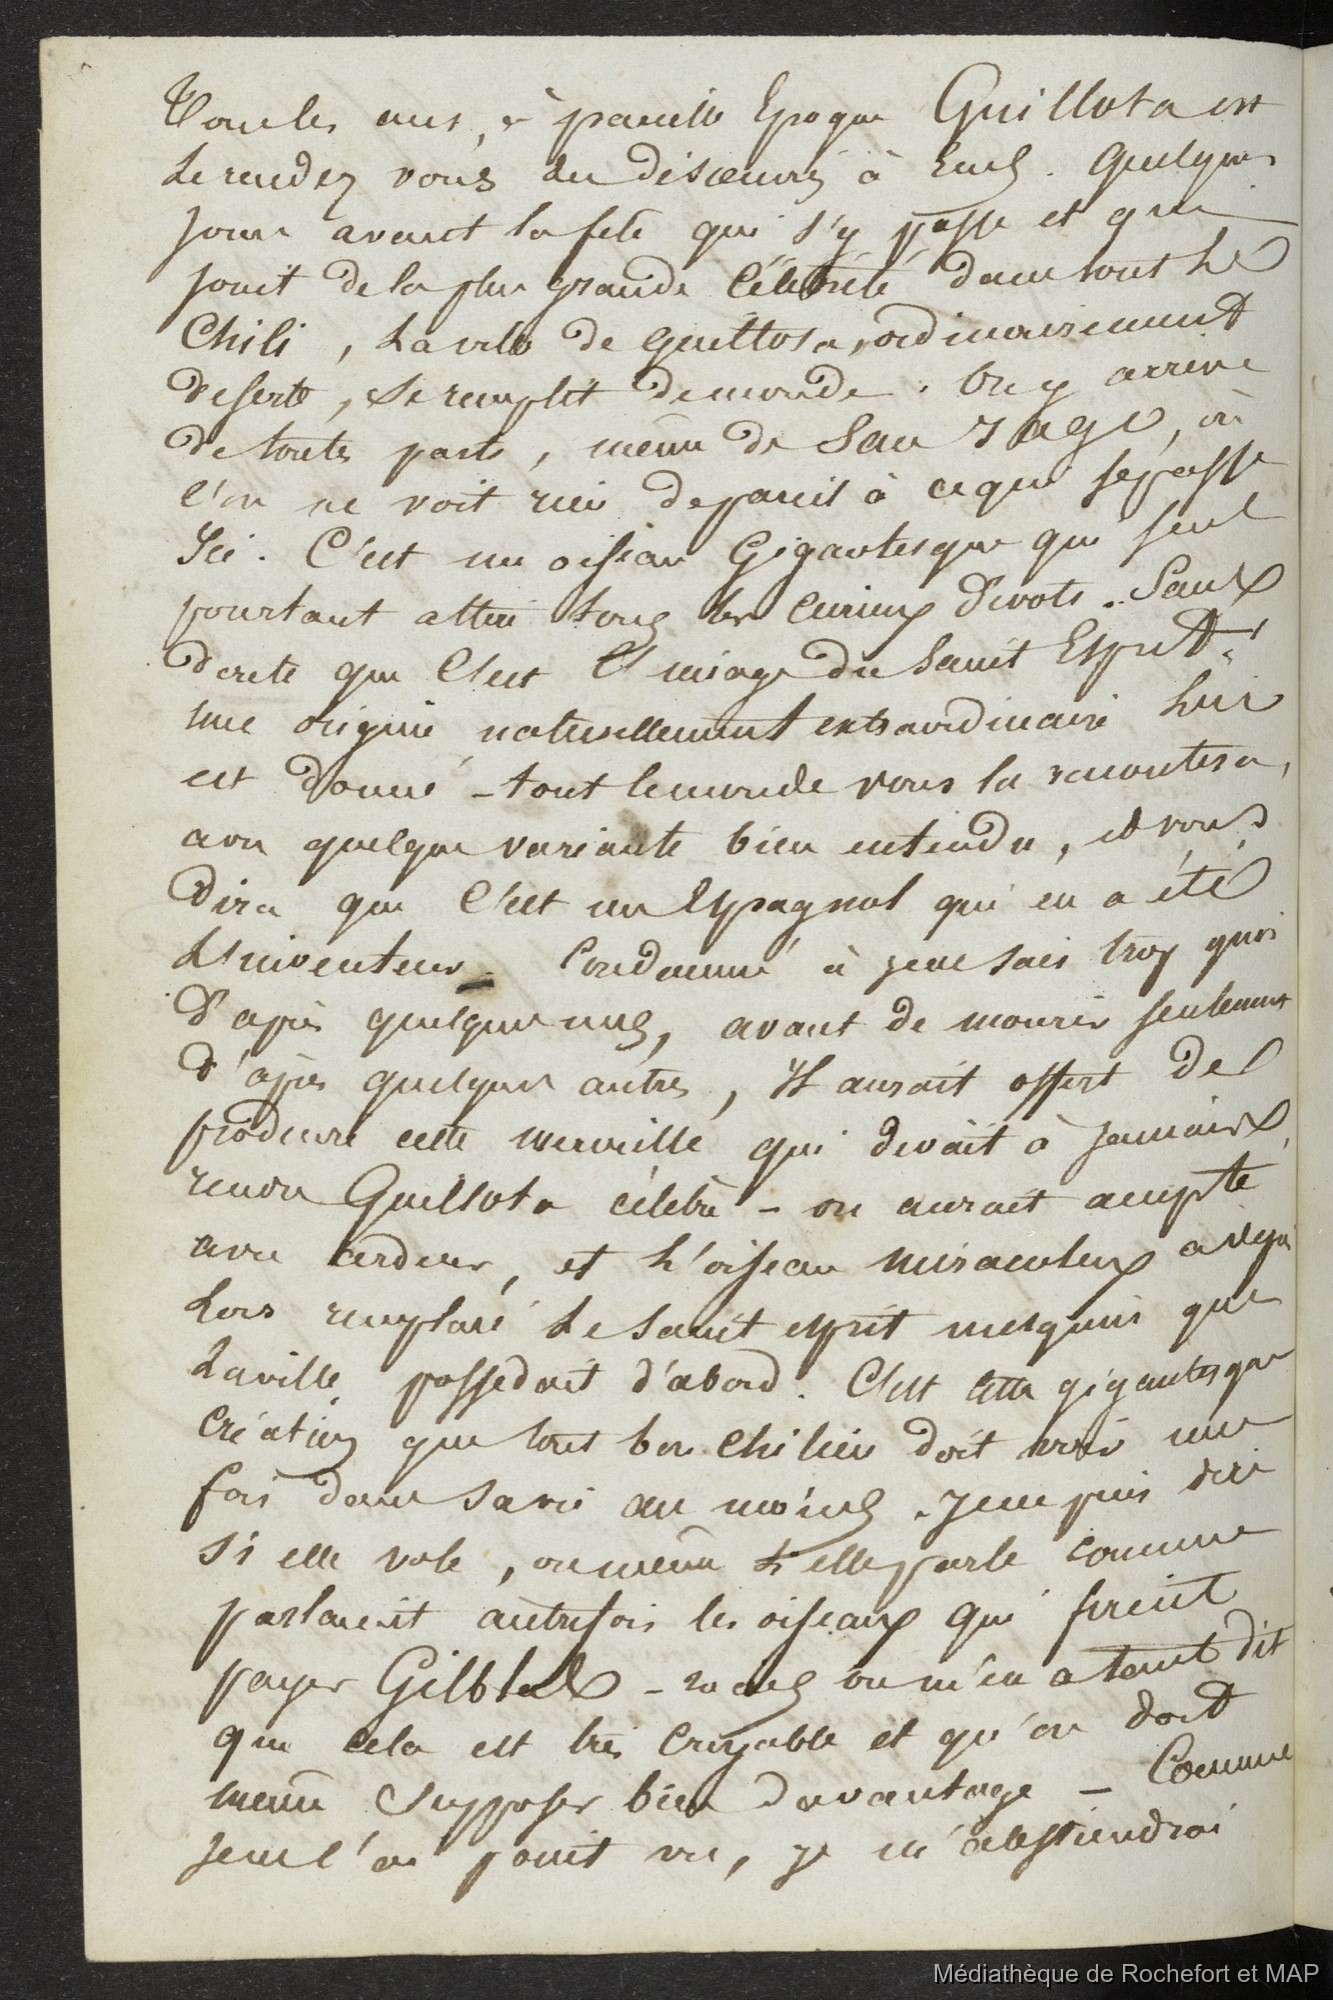 Tous les ans, à pareille Epoque Guillota est
Le rendez vous des désœuvrés à . Quelques
jours avant la fête qui s'y passe et qui
jouit de la plus grande Célébrité dans tout Le
Chili, La ville de Guillota, ordinairement
déserte, se remplit de monde. On y arrive
de toutes parts, même de San Iago, où
l'on ne voit rien de pareil à ce qui se passe
Ici. C'est un oiseau Gigantesque qui seul
pourtant attire tous les Curieux dévots. Sans
doute que C'est l'image du Saint Esprit.
une origine naturellement extraordinaire Lui
est donné - tout le monde vous la racontera,
avec quelque variante bien entendu, et vous
dira que C'est un Espagnol qui en a été
L'inventeur. Condamné à je ne sais trop quoi
d'après quelques uns, avant de mourir seulement
d'après quelques autres, Il aurait offert de
produire cette merveille qui devait à jamais
rendre Guillota célèbre - on aurait accepté
avec ardeur, et L'oiseau miraculeux a depuis
Lors remplacé Le Saint esprit mesquin que
La ville possedait d'abord. C'est cette gigantesque
Création que tout bon Chilien doit voir une
fois dans sa vie au moins. Je ne puis dire
si elle vole, ou même si elle parle comme
parlaient autrefois les oiseaux qui firent
payer GilblaS - mais on m'en a tant dit
que cela est très Croyable et qu'on doit
même Supposer bien davantage - Comme
je ne l'ai point vu, je m'abstiendrai
Médiathèque de Rochefort et MAP